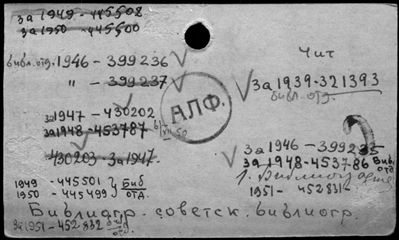 за 1949 - 445502
за 1950 - 445500
библ. отд. 1946 - 399236
" - 399237
за 1947 - 430202
за 1948 - 453787
430203 - за 1947.
1949 - 445501 } Биб
1950 - 445499 } отд.
Библиогр. советск. библиогр.
за 1951 - 452832
АЛФ.
Чит
за 1939 - 321393
библ. отд.
за 1946 - 399235
за 1948 - 453786 Биб
отд
1951 - 452831